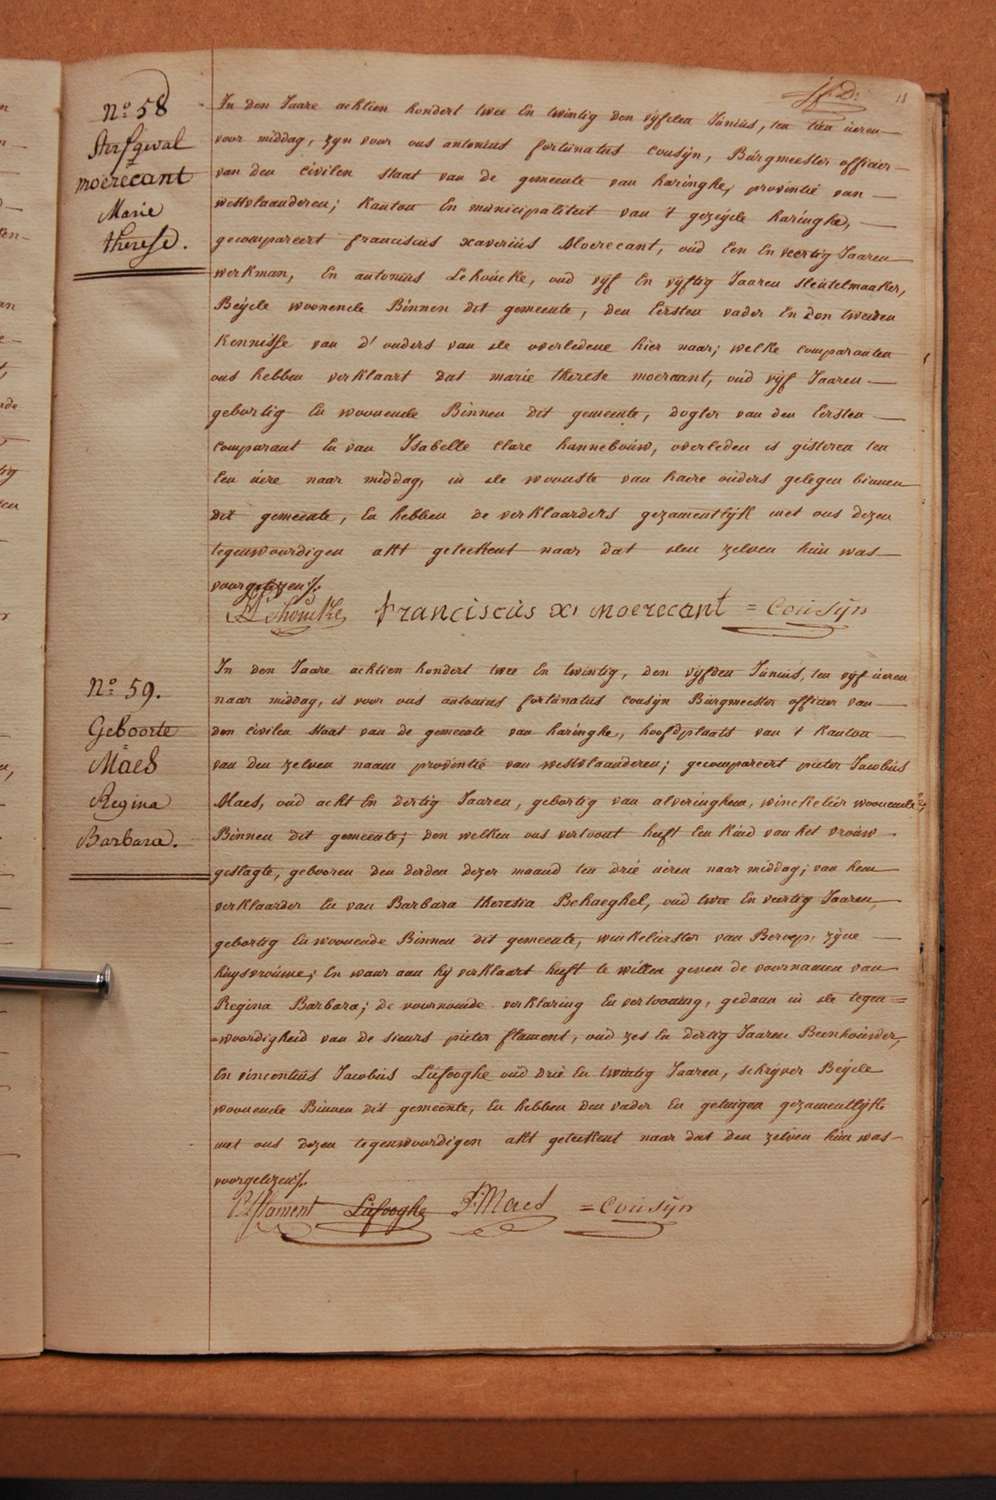 11
N.o 58
Sterfgeval
moerecant
Marie
therese.
In den Jaare achtien hondert twee En twintig den vijfden Junius, ten tien üeren
voor middag, zyn voor ons antonius fortunatus cousÿn, Burgmeester officier
van den civilen staat van de gemeente van haringhe, provintie van
westvlaanderen; kanton En municipaliteit van 't gezeijde haringhe,
gecompareert franciscus xaverius Moerecant, oud Een En veertig Jaaren
werkman, En antonius Lehoucke, oud vijf En vijftig Jaaren sleutelmaaker,
Beijde woonende Binnen dit gemeente, den Eersten vader En den tweeden
kennisse van d' ouders van de overledene hier naar; welke comparanten
ons hebben verklaart dat marie therese moerecant, oud vijf Jaaren
gebortig En woonende Binnen dit gemeente, dogter van den Eersten
comparant En van Isabelle Clare hannebouw, overleden is gisteren ten
Een üere naar middag, in de woonste van haere ouders gelegen binnen
dit gemeente, En hebben de verklaarders gezamentlijk met ons dezen
tegenwoordigen akt geteekent naar dat den zelven hun was
voorgelezen ./.
franciscus x: moerecant = Cousÿn
N.o 59.
Geboorte
Maes
Regina
Barbara.
In den Jaare achtien hondert twee En twintig, den vijfden Junius, ten vijf üeren
naar middag, is voor ons antonius fortunatus cousijn Burgmeester officier van
den civilen staat van de gemeente van haringhe, hoofdplaats van 't Kanton
van den zelven naam provintie van westvlaanderen; gecompareert pieter Jacobus
Maes, oud acht En dertig Jaaren, gebortig van alveringhem, winckelier woonende
Binnen dit gemeente; den welken ons vertoont heeft Een kind van het vrouw
geslagte, gebooren den derden dezer maand ten drie üeren naar middag; van hem
verklaarder En van Barbara theresia Behaeghel, oud twee En veertig Jaaren,
gebortig En woonende Binnen dit gemeente, winkelierster van Beroep, zijne
huysvrouwe; En waar aan hij verklaart heeft te willen geven de voornamen van
Regina Barbara; de voornoemde verklaring En vertooning, gedaan in de tegen=
=woordigheid van de sieurs pieter flament, oud zes En dertig Jaaren Beenhouwer,
En vincentius Jacobus Lufooghe oud drie En twintig Jaaren, schrijver Beijde
woonende Binnen dit gemeente, En hebben den vader En getuigen gezamentlijk
met ons dezen tegenwoordigen akt geteekent naar dat den zelven hun was
voorgelezen ./.
flament Lufooghe P: Maes = Cousÿn